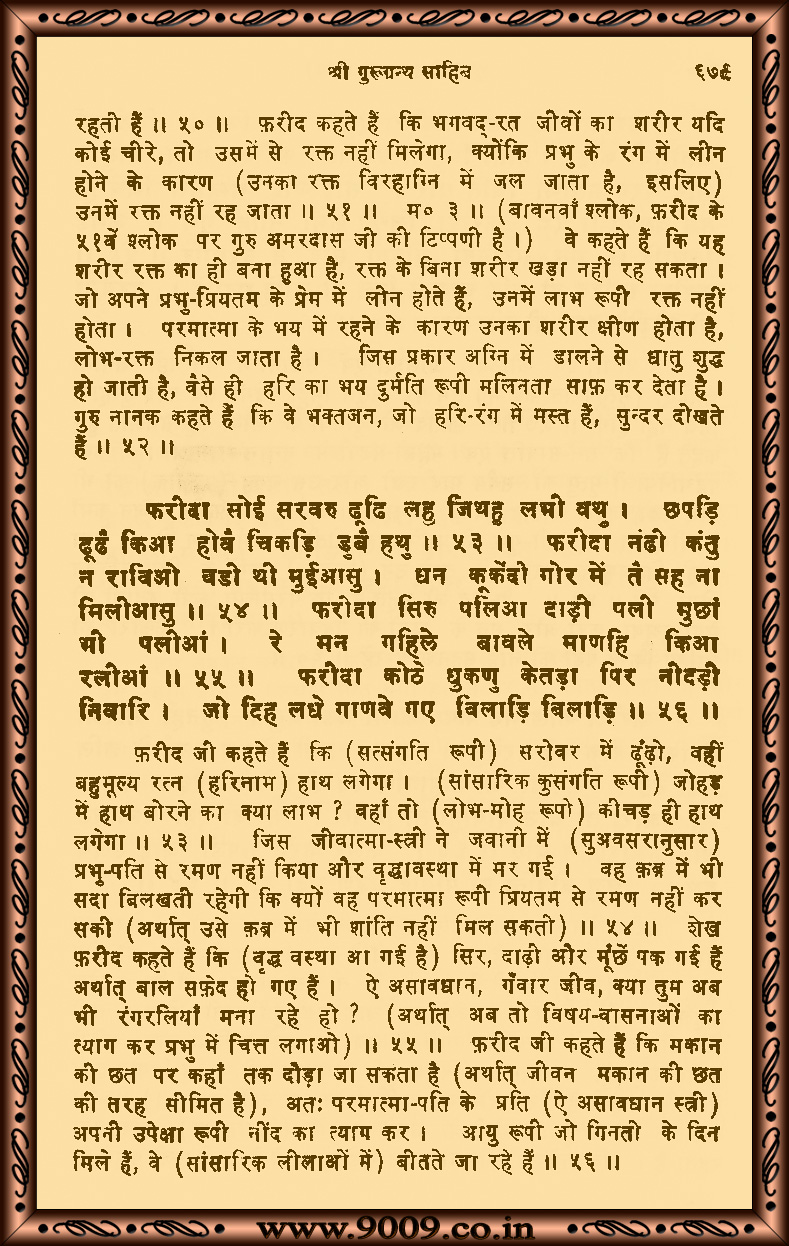 श्री गुरूग्रन्थ साहिब ६७९
रहती हैं ॥ ५० ॥ फ़रीद कहते हैं कि भगवद्-रत जीवों का शरीर यदि
कोई चीरे, तो उसमें से रक्त नहीं मिलेगा, क्योंकि प्रभु के रंग में लीन
होने के कारण (उनका रक्त विरहाग्नि में जल जाता है, इसलिए)
उनमें रक्त नहीं रह जाता ॥ ५१ ॥ म० ३ ॥ (बावनवाँ श्लोक, फ़रीद के
५१वें श्लोक पर गुरु अमरदास जी की टिप्पणी है।) वे कहते हैं कि यह
शरीर रक्त का ही बना हुआ है, रक्त के बिना शरीर खड़ा नहीं रह सकता ।
जो अपने प्रभु-प्रियतम के प्रेम में लीन होते हैं, उनमें लाभ रूपी रक्त नहीं
होता । परमात्मा के भय में रहने के कारण उनका शरीर क्षीण होता है,
लोभ-रक्त निकल जाता है । जिस प्रकार अग्नि में डालने से धातु शुद्ध
हो जाती है, वैसे ही हरि का भय दुर्मति रूपी मलिनता साफ़ कर देता है ।
गुरु नानक कहते हैं कि वे भक्तजन, जो हरि-रंग में मस्त हैं, सुन्दर दीखते
हैं ॥ ५२ ॥
फरीदा सोई सरवरु ढूढि लहु जिथहु लभी वथु । छपड़ि
ढूढै किआ होवै चिकड़ि डुबै हथु ॥ ५३ ॥ फरीदा नंढी कंतु
न राविओ वडी थी मुईआसु । धन कूकेंदी गोर में तै सह ना
मिलीआसु ॥ ५४ ॥ फरीदा सिरु पलिआ दाड़ी पली मुछां
भी पलीआं । रे मन गहिले बावले माणहि किआ
रलीआं ॥ ५५ ॥ फरीदा कोठे धुकणु केतड़ा पिर नीदड़ी
निवारि । जो दिह लधे गाणवे गए विलाड़ि विलाड़ि ॥ ५६ ॥
फ़रीद जी कहते हैं कि (सत्संगति रूपी) सरोवर में ढूँढ़ो, वहीं
बहुमूल्य रत्न (हरिनाम) हाथ लगेगा । (सांसारिक कुसंगति रूपी) जोहड़
में हाथ बोरने का क्या लाभ ? वहाँ तो (लोभ-मोह रूपी) कीचड़ ही हाथ
लगेगा ॥ ५३ ॥ जिस जीवात्मा-स्त्री ने जवानी में (सुअवसरानुसार)
प्रभु-पति से रमण नहीं किया और वृद्धावस्था में मर गई । वह क़ब्र में भी
सदा बिलखती रहेगी कि क्यों वह परमात्मा रूपी प्रियतम से रमण नहीं कर
सकी (अर्थात् उसे क़ब्र में भी शांति नहीं मिल सकती) ॥ ५४ ॥ शेख
फ़रीद कहते हैं कि (वृद्ध वस्था आ गई है) सिर, दाढ़ी और मूँछें पक गई हैं
अर्थात् बाल सफ़ेद हो गए हैं । ऐ असावधान, गँवार जीव, क्या तुम अब
भी रंगरलियाँ मना रहे हो ? (अर्थात् अब तो विषय-वासनाओं का
त्याग कर प्रभु में चित्त लगाओ) ॥ ५५ ॥ फ़रीद जी कहते हैं कि मकान
की छत पर कहाँ तक दौड़ा जा सकता है (अर्थात् जीवन मकान की छत
की तरह सीमित है), अतः परमात्मा-पति के प्रति (ऐ असावधान स्त्री)
अपनी उपेक्षा रूपी नींद का त्याग कर । आयु रूपी जो गिनती के दिन
मिले हैं, वे (सांसारिक लीलाओं में) बीतते जा रहे हैं ॥ ५६ ॥
www.9009.co.in